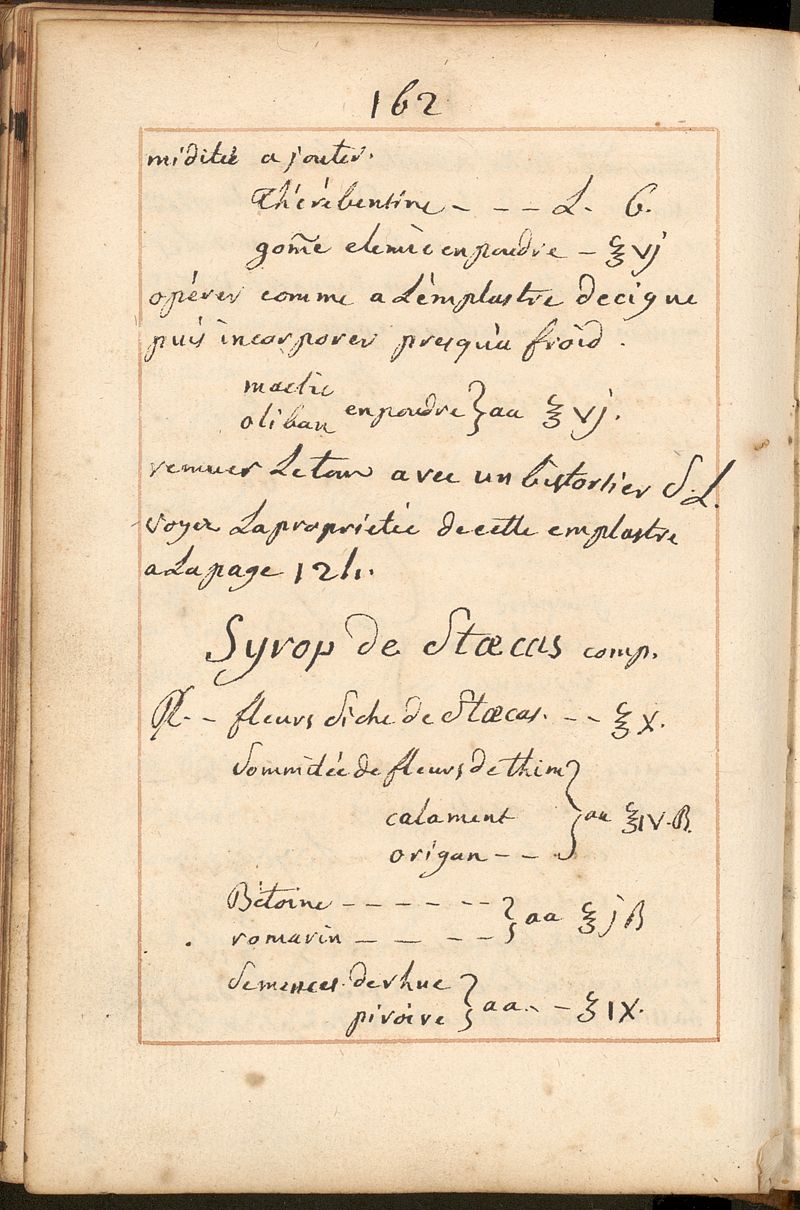 162
miditeé ajouter.
Thérébentine - - - L. 6.
gom̃e elemie en poudre - ℥ vj
opérer comme a Lémplastre decigue
puis incorporer presqu'a froid.
mastic
oliban en poudre } aa ℥ vj.
remuer Letout avec un bistortier S. L.
voyez Lapropriétée decette emplastre
a Lapage 124.
Syrop de Stœcas comp.
℞. - fleurs siche de Stœcas. - - ℥ X.
Sommitée de fleurs de thim
calament } aa ℥ IV. ß.
origan - - -
Bétoine - - - - - -
romarin - - - - } aa ℥ j ß
Semences de rhue
pivoire } aa. - ℥ IX.